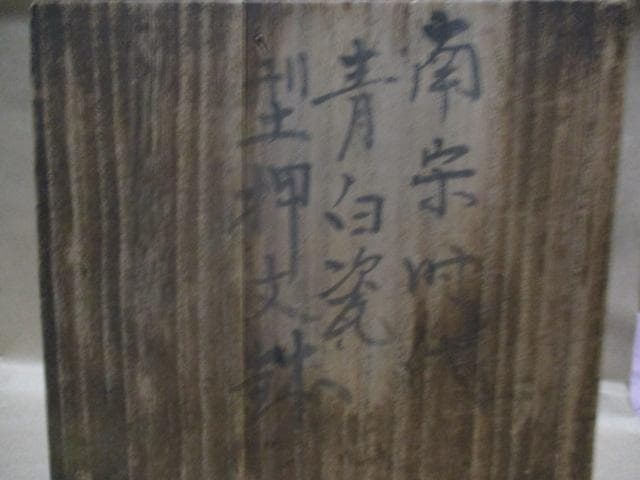 南宋时代
青白瓷
型押文鉢